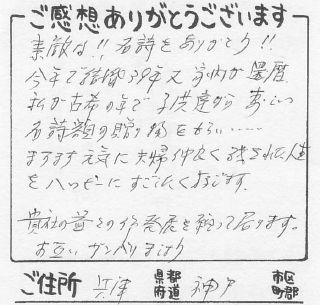 ご感想ありがとうございます
素敵な!! 名詩をありがとう!!
今年で結婚39年又家内が還暦
私が古希の年で子供達から素敵な
名詩額の贈り物をもらい……
ますます元気に夫婦仲良く残された人生
をハッピーにすごしたく思います。
貴社の益々の御発展を祈って居ります。
お互いガンバリましょう
ご住所 兵庫 県都府道 神戸 市区町郡